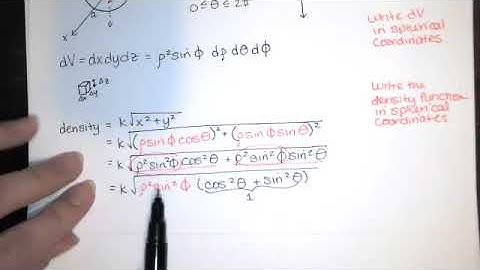 2
x
0≤θ≤2π
Write dV
in spherical
coordinates
dV = dxdydz = ρ²sinφ dρ dθ dφ
Δz
Δx Δy
Write the
density function
in spherical
coordinates
density = k√(x² + y²)
= k√((ρsinφcosθ)² + (ρsinφsinθ)²)
= k√(ρ²sin²φcos²θ + ρ²sin²φsin²θ)
= k√(ρ²sin²φ (cos²θ + sin²θ))
1